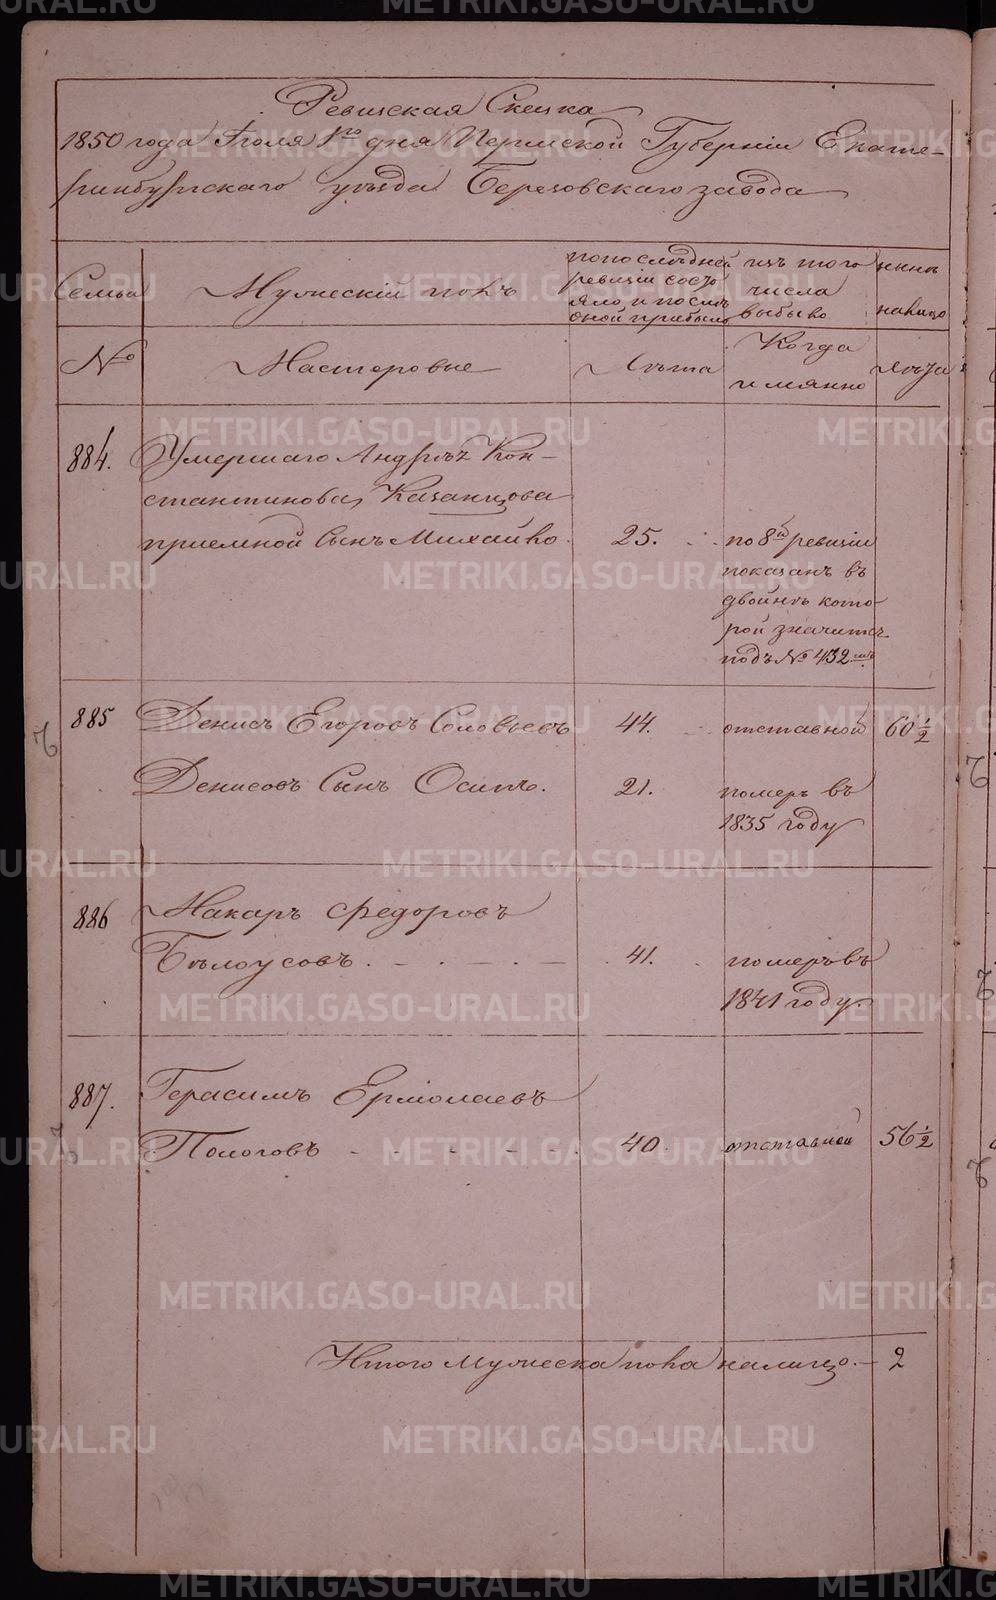 Ревизская Сказка
1850 года Іюля 1го дня Пермской Губерніи Екате-
ринбургскаго уѣзда Березовскаго завода
Семьи
Мужескій полъ
попослѣдней
ревизіи состо
яло и послѣ
оной прибыло
изъ того
числа
выбыло
нынѣ
налицо
№
Мастеровые
Лѣта
Когда
именно
Лѣта
884.
Умершаго Андрѣя Кон-
стантинова Казанцова
приемной Сынъ Михайло.
25.
по 8й ревизіи
показанъ въ
двойнѣ кото-
рой значитсь
подъ № 432
885
Денисъ Егоровъ Соловьевъ
44.
отставной
60 1/2
Денисовъ Сынъ Осипъ.
21.
померъ въ
1835 году
886
Макаръ Федоровъ
Бѣлоусовъ.
41.
померъ въ
1841 году.
887.
Герасимъ Ермолаевъ
Пологовъ
40.
отставной
56 1/2
Итого мужеска пола налицо. — 2
METRIKI.GASO-URAL.RU